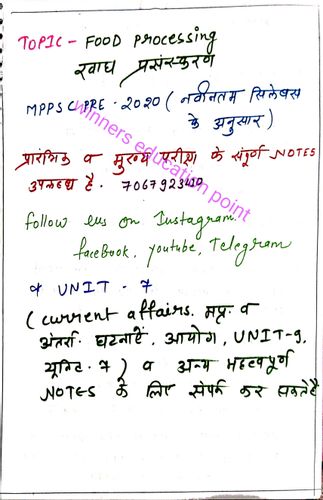 TOPIC - FOOD Processing
खाद्य प्रसंस्करण
MPPSC PRE. 2020 ( नवीनतम सिलेबस
के अनुसार )
प्रारंभिक व मुख्य परीक्षा के संपूर्ण NOTES
उपलब्ध है. 7067923410
follow us on Instagram.
facebook, youtube, Telegram
व UNIT - 7
( current affairs. मप्र. व
अंतर्रा. घटनाऐं, आयोग, UNIT-9,
यूनिट. 7 ) व अन्य महत्वपूर्ण
NOTES के लिए संपर्क कर सकते है
winners education point